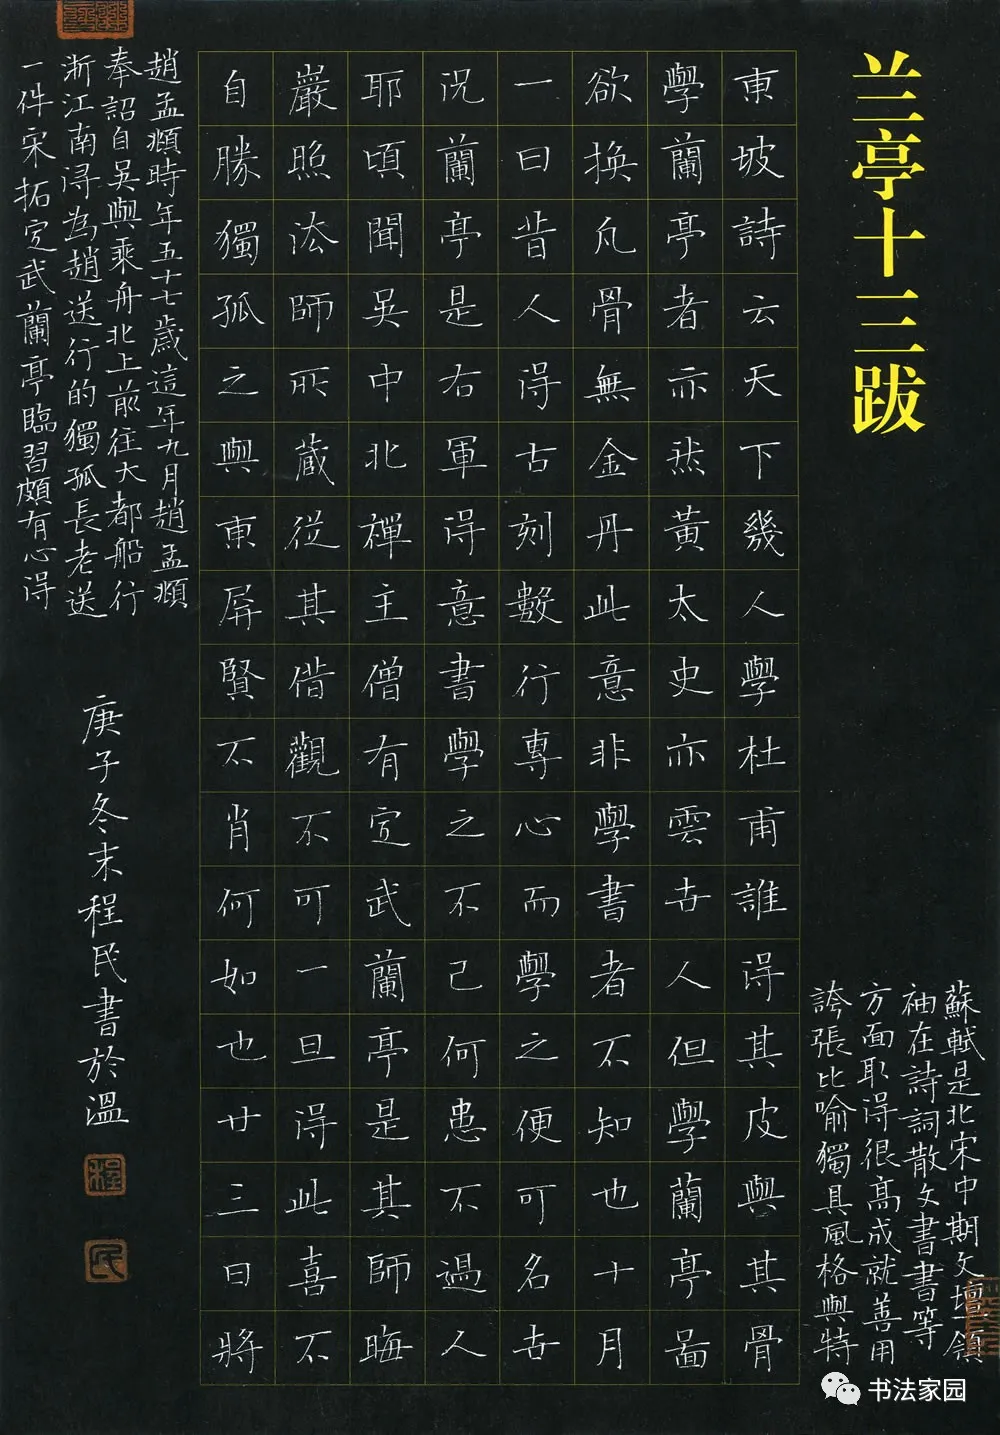 兰亭十三跋
東坡詩云天下幾人學杜甫誰得其皮與其骨
學蘭亭者亦然黃太史亦雲世人但學蘭亭面
欲換凡骨無金丹此意非學書者不知也十月
一日昔人得古刻數行專心而學之便可名世
況蘭亭是右軍得意書學之不已何患不過人
耶頃聞吳中北禪主僧有定武蘭亭是其師晦
嚴照法師所藏從其借觀不可一旦得此喜不
自勝獨孤之與東屏賢不肖何如也廿三日將
蘇軾是北宋中期文壇領
袖在詩詞散文書書等
方面取得很高成就善用
誇張比喻獨具風格與特
趙孟頫時年五十七歲這年九月趙孟頫
奉詔自吳與乘舟北上前往大都船行
浙江南潯為趙送行的獨孤長老送
一件宋拓定武蘭亭臨習頗有心得
庚子冬末程民書於溫
程
民
书法家园